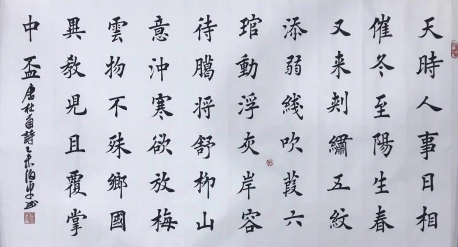 天時人事日相
催冬至陽生春
又来刾繡五紋
添弱綫吹葭六
琯動浮灰岸容
待臈将舒柳山
意沖寒欲放梅
雲物不殊鄉國
異教児且覆掌
中盃
唐杜甫詩乙未